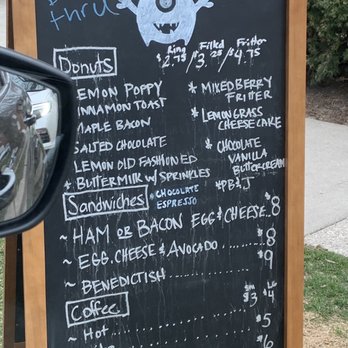 thru
Donuts Ring / Filled / Fritter
$2.75 / $3.25 / $4.75
LEMON POPPY
CINNAMON TOAST
MAPLE BACON
SALTED CHOCOLATE
LEMON OLD FASHIONED
* BUTTERMILK W/ SPRINKLES
* CHOCOLATE
ESPRESSO
* MIXED BERRY
FRITTER
* LEMONGRASS
CHEESECAKE
* CHOCOLATE
VANILLA
BUTTERCREAM
* PB&J
Sandwiches
~ HAM OR BACON EGG & CHEESE $8
~ EGG, CHEESE & AVOCADO ........ $8
~ BENEDICTISH .................. $9
Coffee $3 $4
~ Hot
$5
6